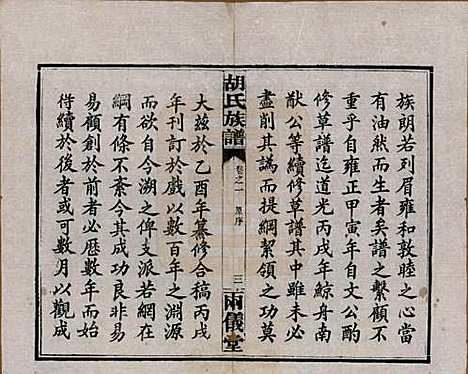 族朗若列眉雍和敦睦之心當
有油然而生者矣譜之繫顧不
重乎自雍正甲寅年自文公酌
修草譜迄道光丙戌年鯨舟南
猷公等續修草譜其中雖未必
盡削其譌而提綱絜領之功莫
胡氏族譜
卷之一
原序
三
兩儀堂
大兹於乙酉年纂修合稿丙戌
年刊訂於戲以數百年之淵源
而欲自今溯之俾支派若網在
綱有條不紊今其成功良非易
易顧創於前者必歷數年而始
得續於後者或以數月以觀成